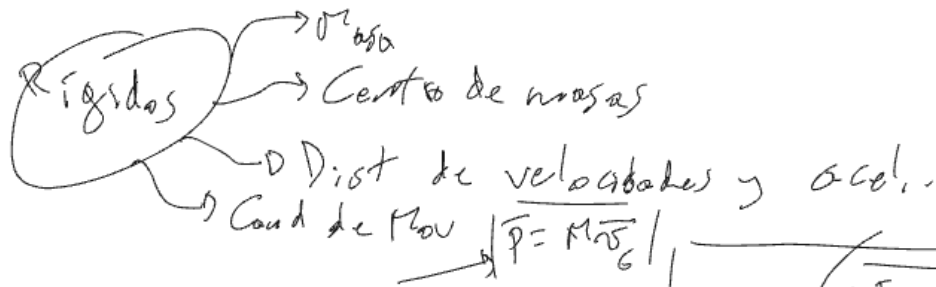 Masa
Rígidos
Centro de masas
Dist de velocidades y acel..
Cand de Mov
|p̄ = M v̄_G|